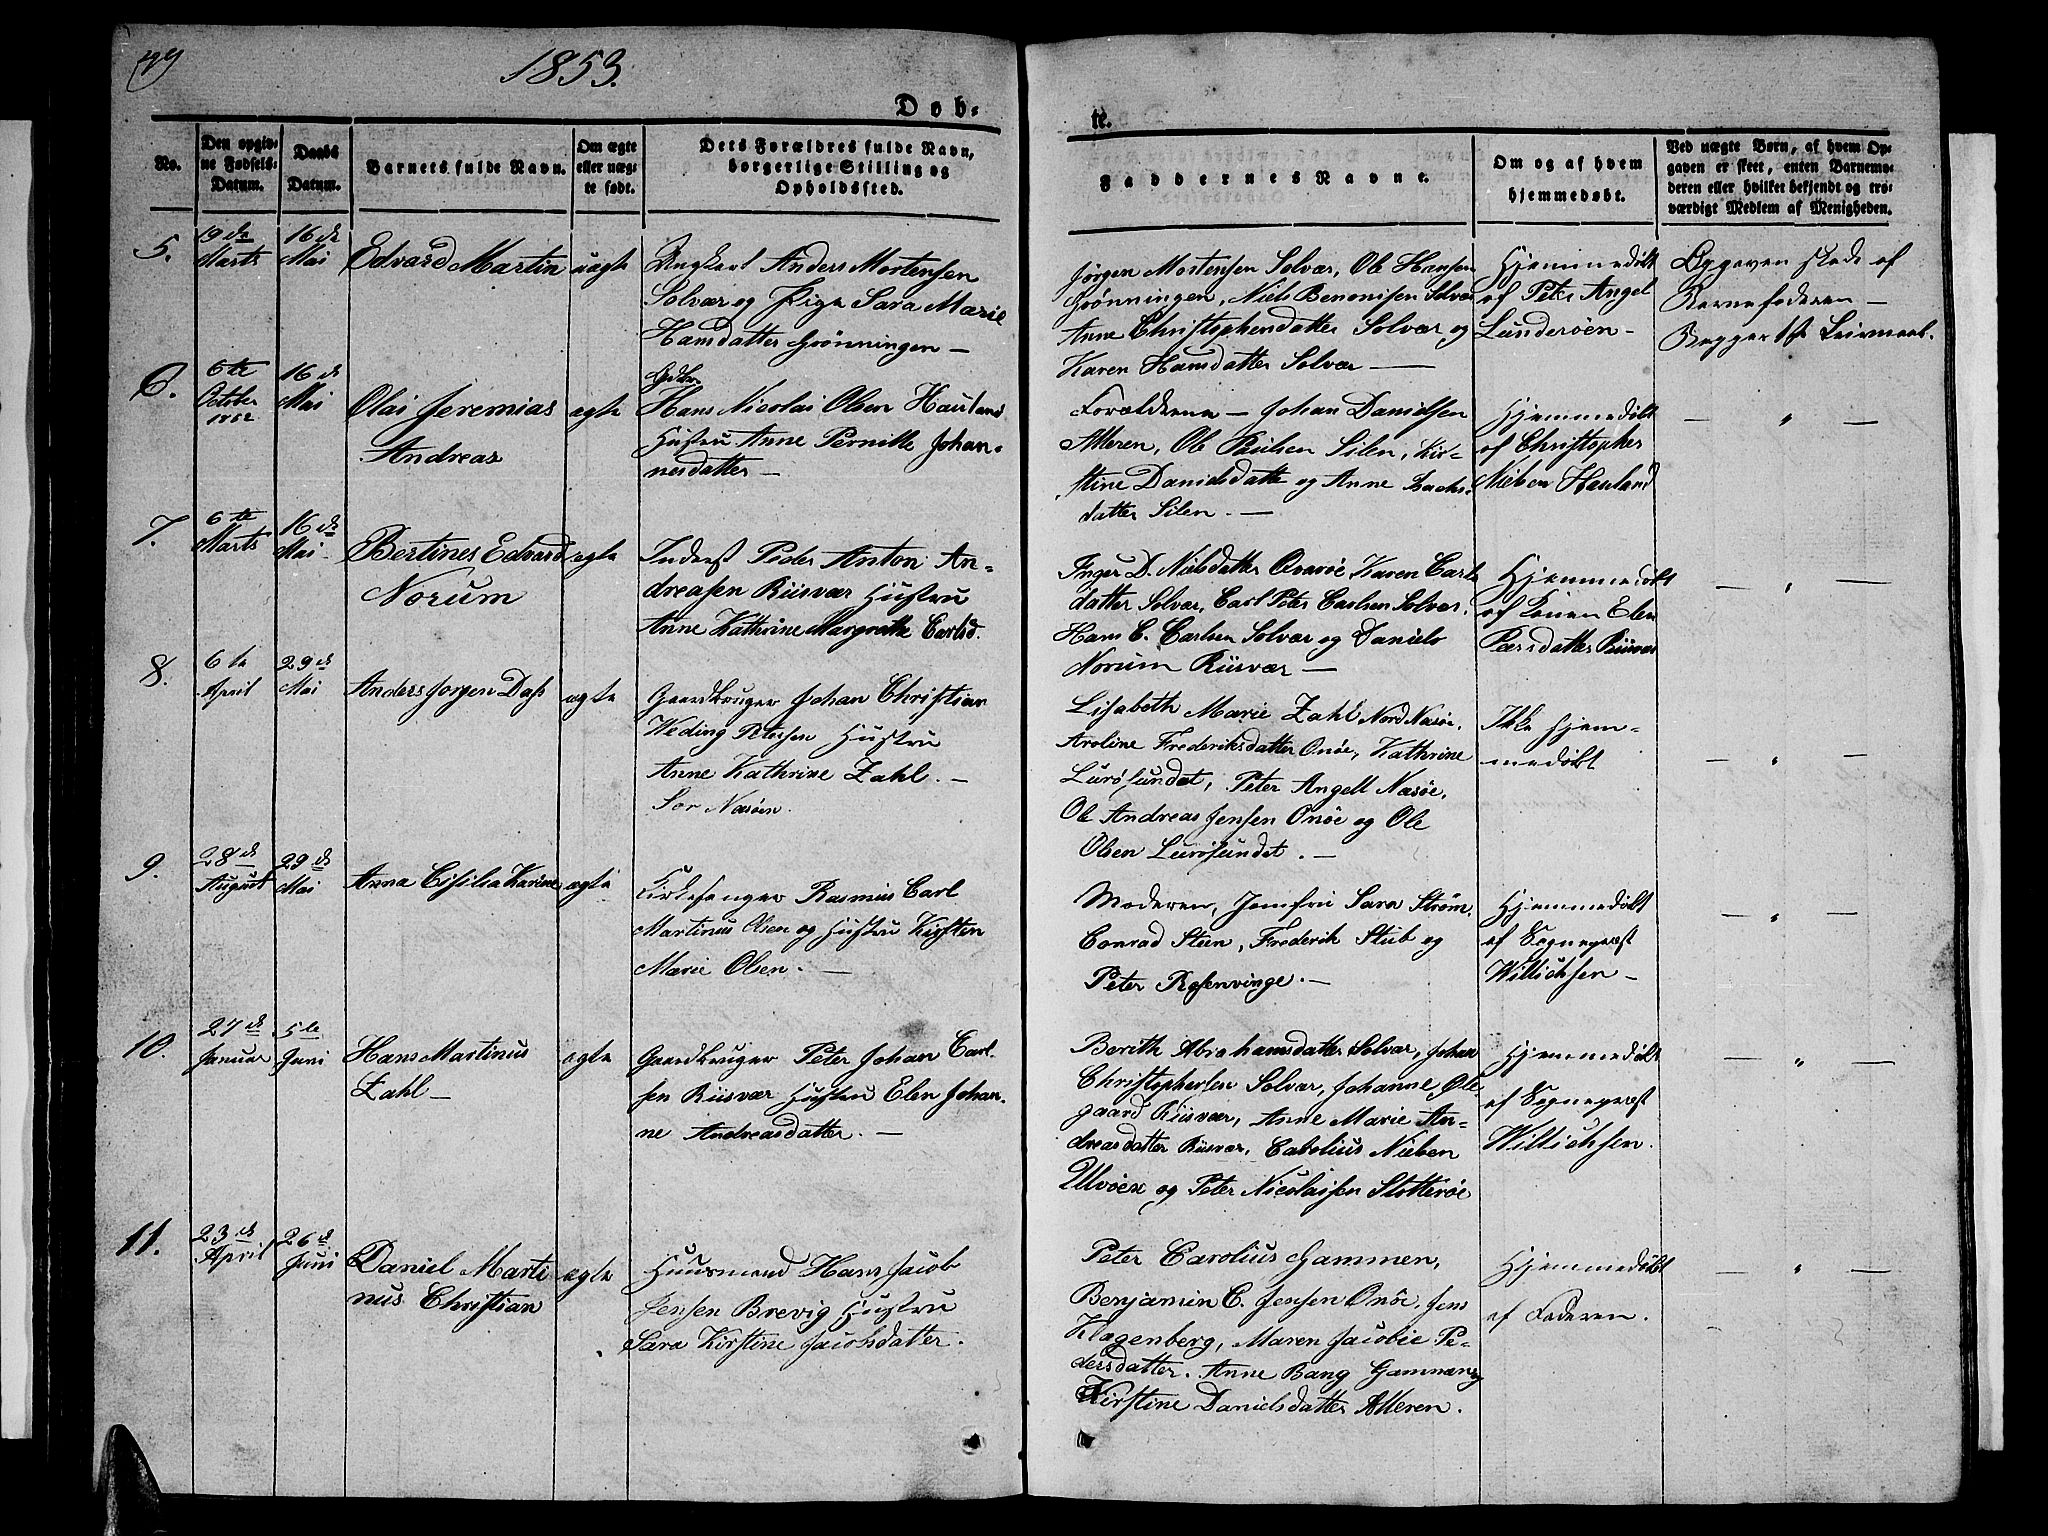 1853.
Døb-
te.
No.
Den opgiv-
ne Fødsels-
Datum.
Daabs
Datum.
Barnets fulde Navn.
Om ægte
eller uæg-
te født.
Dets Forældres fulde Navn,
borgerlige Stilling og
Opholdssted.
Faddernes Navne.
Om og af hvem
hjemmedøbt.
Ved uægte Børn, af hvem Op-
gaven er skeet, enten Barnemo-
deren eller hvilket bekjendt og tro-
værdigt Medlem af Menigheden.
5.
19de
Marts
16de
Mai
Edvard Martin
uægte
Ungkarl Anders Mortensen
Solvær og Pige Sara Marie
Hansdatter Grønningen —
Jørgen Mortensen Solvær, Ole Hansen
Grønningen, Niels Benonisen Solvær
Anne Christophersdatter Solvær og
Karen Hansdatter Solvær —
Hjemmedøbt
af Peter Angel
Lunderøen —
Opgaven skede af
Barnefaderen —
Begges 1ste Leiermaal.
6.
6te
October
1852
16de
Mai
Olai Jeremias
Andreas
ægte
Hans Nicolai Olsen Hauland
Hustru Anne Pernille Johan-
nesdatter —
Forældrene — Johan Danielsen
Alteren, Ole Paulsen Silen, Kir-
stine Danielsdatter og Anne Zachs-
datter Silen. —
Hjemmedøbt
af Christopher
Nielsen Hauland
— " —
7.
6te
Marts
16de
Mai
Bertines Edvard
Norum
ægte
Inderst Peder Anton An-
dreasen Riisvær Hustru
Anne Kathrine Margrethe Carlsd.
Inger D. Nielsdatter Qvarøe Karen Carls
datter Solvær, Carl Peter Carlsen Solvær,
Hans C. Carlsen Solvær og Daniels
Norum Riisvær —
Hjemmedøbt
af Konen Elen
Pedersdatter Riisvær
— " —
8.
6te
April
29de
Mai
Anders Jørgen Dass
ægte
Gaardbruger Johan Christian
Weding Petersen Hustru
Anne Kathrine Zahl. —
Sør Næsøen.
Lisabeth Marie Zahl Nord Næsøe,
Aroline Frederiksdatter Onøe, Kathrine
Lurøsundet, Peter Angell Næsøe,
Ole Andreas Jensen Onøe og Ole
Olsen Lurøsundet. —
Ikke hjem-
medøbt
— " —
9.
28de
August
29de
Mai
Anna Cisilia Karine
ægte
Kirkesanger Rasmus Carl
Martinus Olsen og Hustru Kirsten
Marie Olsen. —
Moderen, Jomfru Sara Strøm,
Conrad Steen, Frederik Stub og
Peter Rosenvinge. —
Hjemmedøbt
af Sognepræst
Willichsen —
— " —
10.
27de
Januar
5te
Juni
Hans Martinus
Zahl —
ægte
Gaardbruger Peter Johan Carl-
sen Riisvær Hustru Elen Johan-
ne Andreasdatter. —
Berith Abrahamsdatter Solvær, Johan
Christophersen Solvær, Johanne Ole-
gaard Riisvær, Anne Marie An-
dreasdatter Riisvær, Cabelius Nielsen
Ulvøen og Peter Nicolaisen Slotterøe
Hjemmedøbt
af Sognepræst
Willichsen.
— " —
11.
23de
April
26de
Juni
Daniel Marti
nus Christian
ægte
Huusmand Hans Jacob
Jensen Brevig Hustru
Sara Kirstine Jacobsdatter.
Peter Carolius Gammen,
Benjamin C. Jensen Onøe, Jens
Klagenberg, Maren Jacobie Pe-
dersdatter. Anne Bang Gammen og
Kirstine Danielsdatter Alteren.
Hjemmedøbt
af Faderen.
— " —